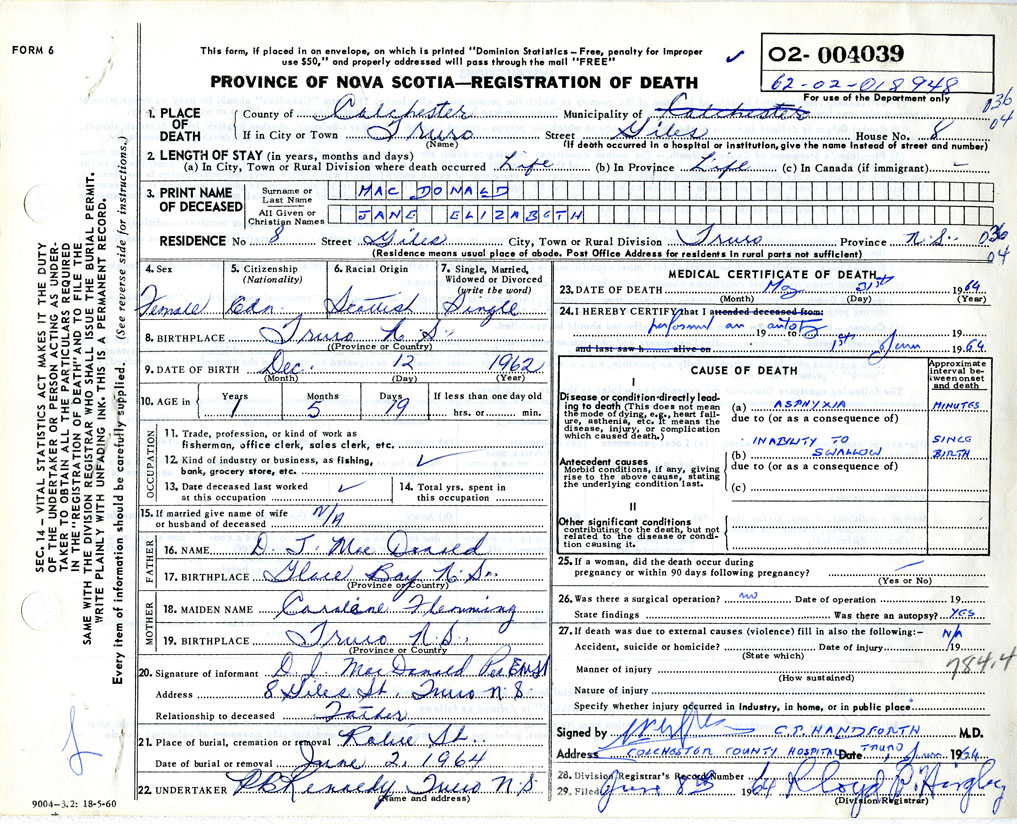 FORM 6
This form, if placed in an envelope, on which is printed "Dominion Statistics – Free, penalty for improper
use $50," and properly addressed will pass through the mail "FREE"
PROVINCE OF NOVA SCOTIA—REGISTRATION OF DEATH
✓
02-004039
62-02-018948
For use of the Department only
036
04
SEC. 14 – VITAL STATISTICS ACT MAKES IT THE DUTY
OF THE UNDERTAKER OR PERSON ACTING AS UNDER-
TAKER TO OBTAIN ALL THE PARTICULARS REQUIRED
IN THE "REGISTRATION OF DEATH" AND TO FILE THE
SAME WITH THE DIVISION REGISTRAR WHO SHALL ISSUE THE BURIAL PERMIT.
WRITE PLAINLY WITH UNFADING INK. THIS IS A PERMANENT RECORD.
Every item of information should be carefully supplied. (See reverse side for instructions.)
1. PLACE OF DEATH
County of Colchester Municipality of Colchester
If in City or Town Truro Street Giles House No. 8
(Name) (If death occurred in a hospital or institution, give the name instead of street and number)
2. LENGTH OF STAY (in years, months and days)
(a) In City, Town or Rural Division where death occurred Life (b) In Province Life (c) In Canada (if immigrant) –
3. PRINT NAME OF DECEASED
Surname or Last Name MAC DONALD
All Given or Christian Names JANE ELIZABETH
RESIDENCE No 8 Street Giles City, Town or Rural Division Truro Province N.S.
036
04
(Residence means usual place of abode. Post Office Address for residents in rural parts not sufficient)
4. Sex Female
5. Citizenship (Nationality) Cdn.
6. Racial Origin Scottish
7. Single, Married, Widowed or Divorced (write the word) Single
8. BIRTHPLACE Truro N.S.
(Province or Country)
9. DATE OF BIRTH Dec. 12 1962
(Month) (Day) (Year)
10. AGE in Years 1 Months 5 Days 19 If less than one day old hrs. or min.
OCCUPATION
11. Trade, profession, or kind of work as
fisherman, office clerk, sales clerk, etc.
12. Kind of industry or business, as fishing,
bank, grocery store, etc. ✓
13. Date deceased last worked
at this occupation ✓
14. Total yrs. spent in
this occupation
15. If married give name of wife
or husband of deceased N/A
FATHER
16. NAME D. J. Mac Donald
17. BIRTHPLACE Glace Bay N.S.
(Province or Country)
MOTHER
18. MAIDEN NAME Caroline Flemming
19. BIRTHPLACE Truro N.S.
(Province or Country)
20. Signature of informant D. J. MacDonald Per
Address 8 Giles St. Truro N.S
Relationship to deceased Father
21. Place of burial, cremation or removal Robie St.
Date of burial or removal June 2, 1964
22. UNDERTAKER Kennedy Truro N.S
(Name and address)
9004-3.2: 18-5-60
MEDICAL CERTIFICATE OF DEATH
23. DATE OF DEATH May 31st 1964
(Month) (Day) (Year)
24. I HEREBY CERTIFY that I attended deceased from:
performed an autopsy
19 to 19
and last saw h alive on 1st June 1964
CAUSE OF DEATH
Approximate interval between onset and death
I
Disease or condition directly leading to death (This does not mean the mode of dying, e.g., heart failure, asthenia, etc. It means the disease, injury, or complication which caused death.)
(a) ASPHYXIA MINUTES
due to (or as a consequence of)
Antecedent causes
Morbid conditions, if any, giving rise to the above cause, stating the underlying condition last.
(b) INABILITY TO SWALLOW SINCE BIRTH
due to (or as a consequence of)
(c)
II
Other significant conditions
contributing to the death, but not related to the disease or condition causing it.
25. If a woman, did the death occur during
pregnancy or within 90 days following pregnancy? –
(Yes or No)
26. Was there a surgical operation? no Date of operation 19
State findings Was there an autopsy? YES
27. If death was due to external causes (violence) fill in also the following:– N/A
Accident, suicide or homicide? Date of injury 19
(State which)
784.4
Manner of injury
(How sustained)
Nature of injury
Specify whether injury occurred in industry, in home, or in public place
Signed by C.P. HANDFORTH M.D.
Address COLCHESTER COUNTY HOSPITAL TRURO Date June 1964
28. Division Registrar's Record Number
29. Filed June 8th 1964 Lloyd
(Division Registrar)